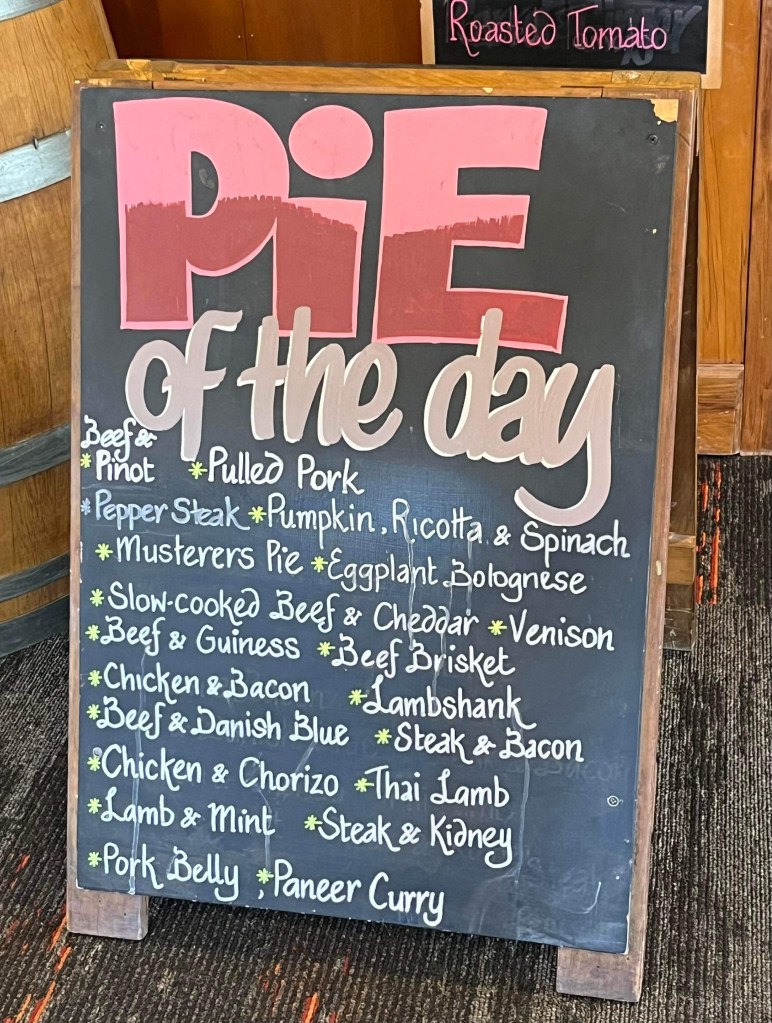 Roasted Tomato
PiE
of the day
Beef &
*Pinot *Pulled Pork
*Pepper Steak *Pumpkin, Ricotta & Spinach
*Musterers Pie *Eggplant Bolognese
*Slow-cooked Beef & Cheddar *Venison
*Beef & Guiness *Beef Brisket
*Chicken & Bacon *Lambshank
*Beef & Danish Blue *Steak & Bacon
*Chicken & Chorizo *Thai Lamb
*Lamb & Mint *Steak & Kidney
*Pork Belly, *Paneer Curry